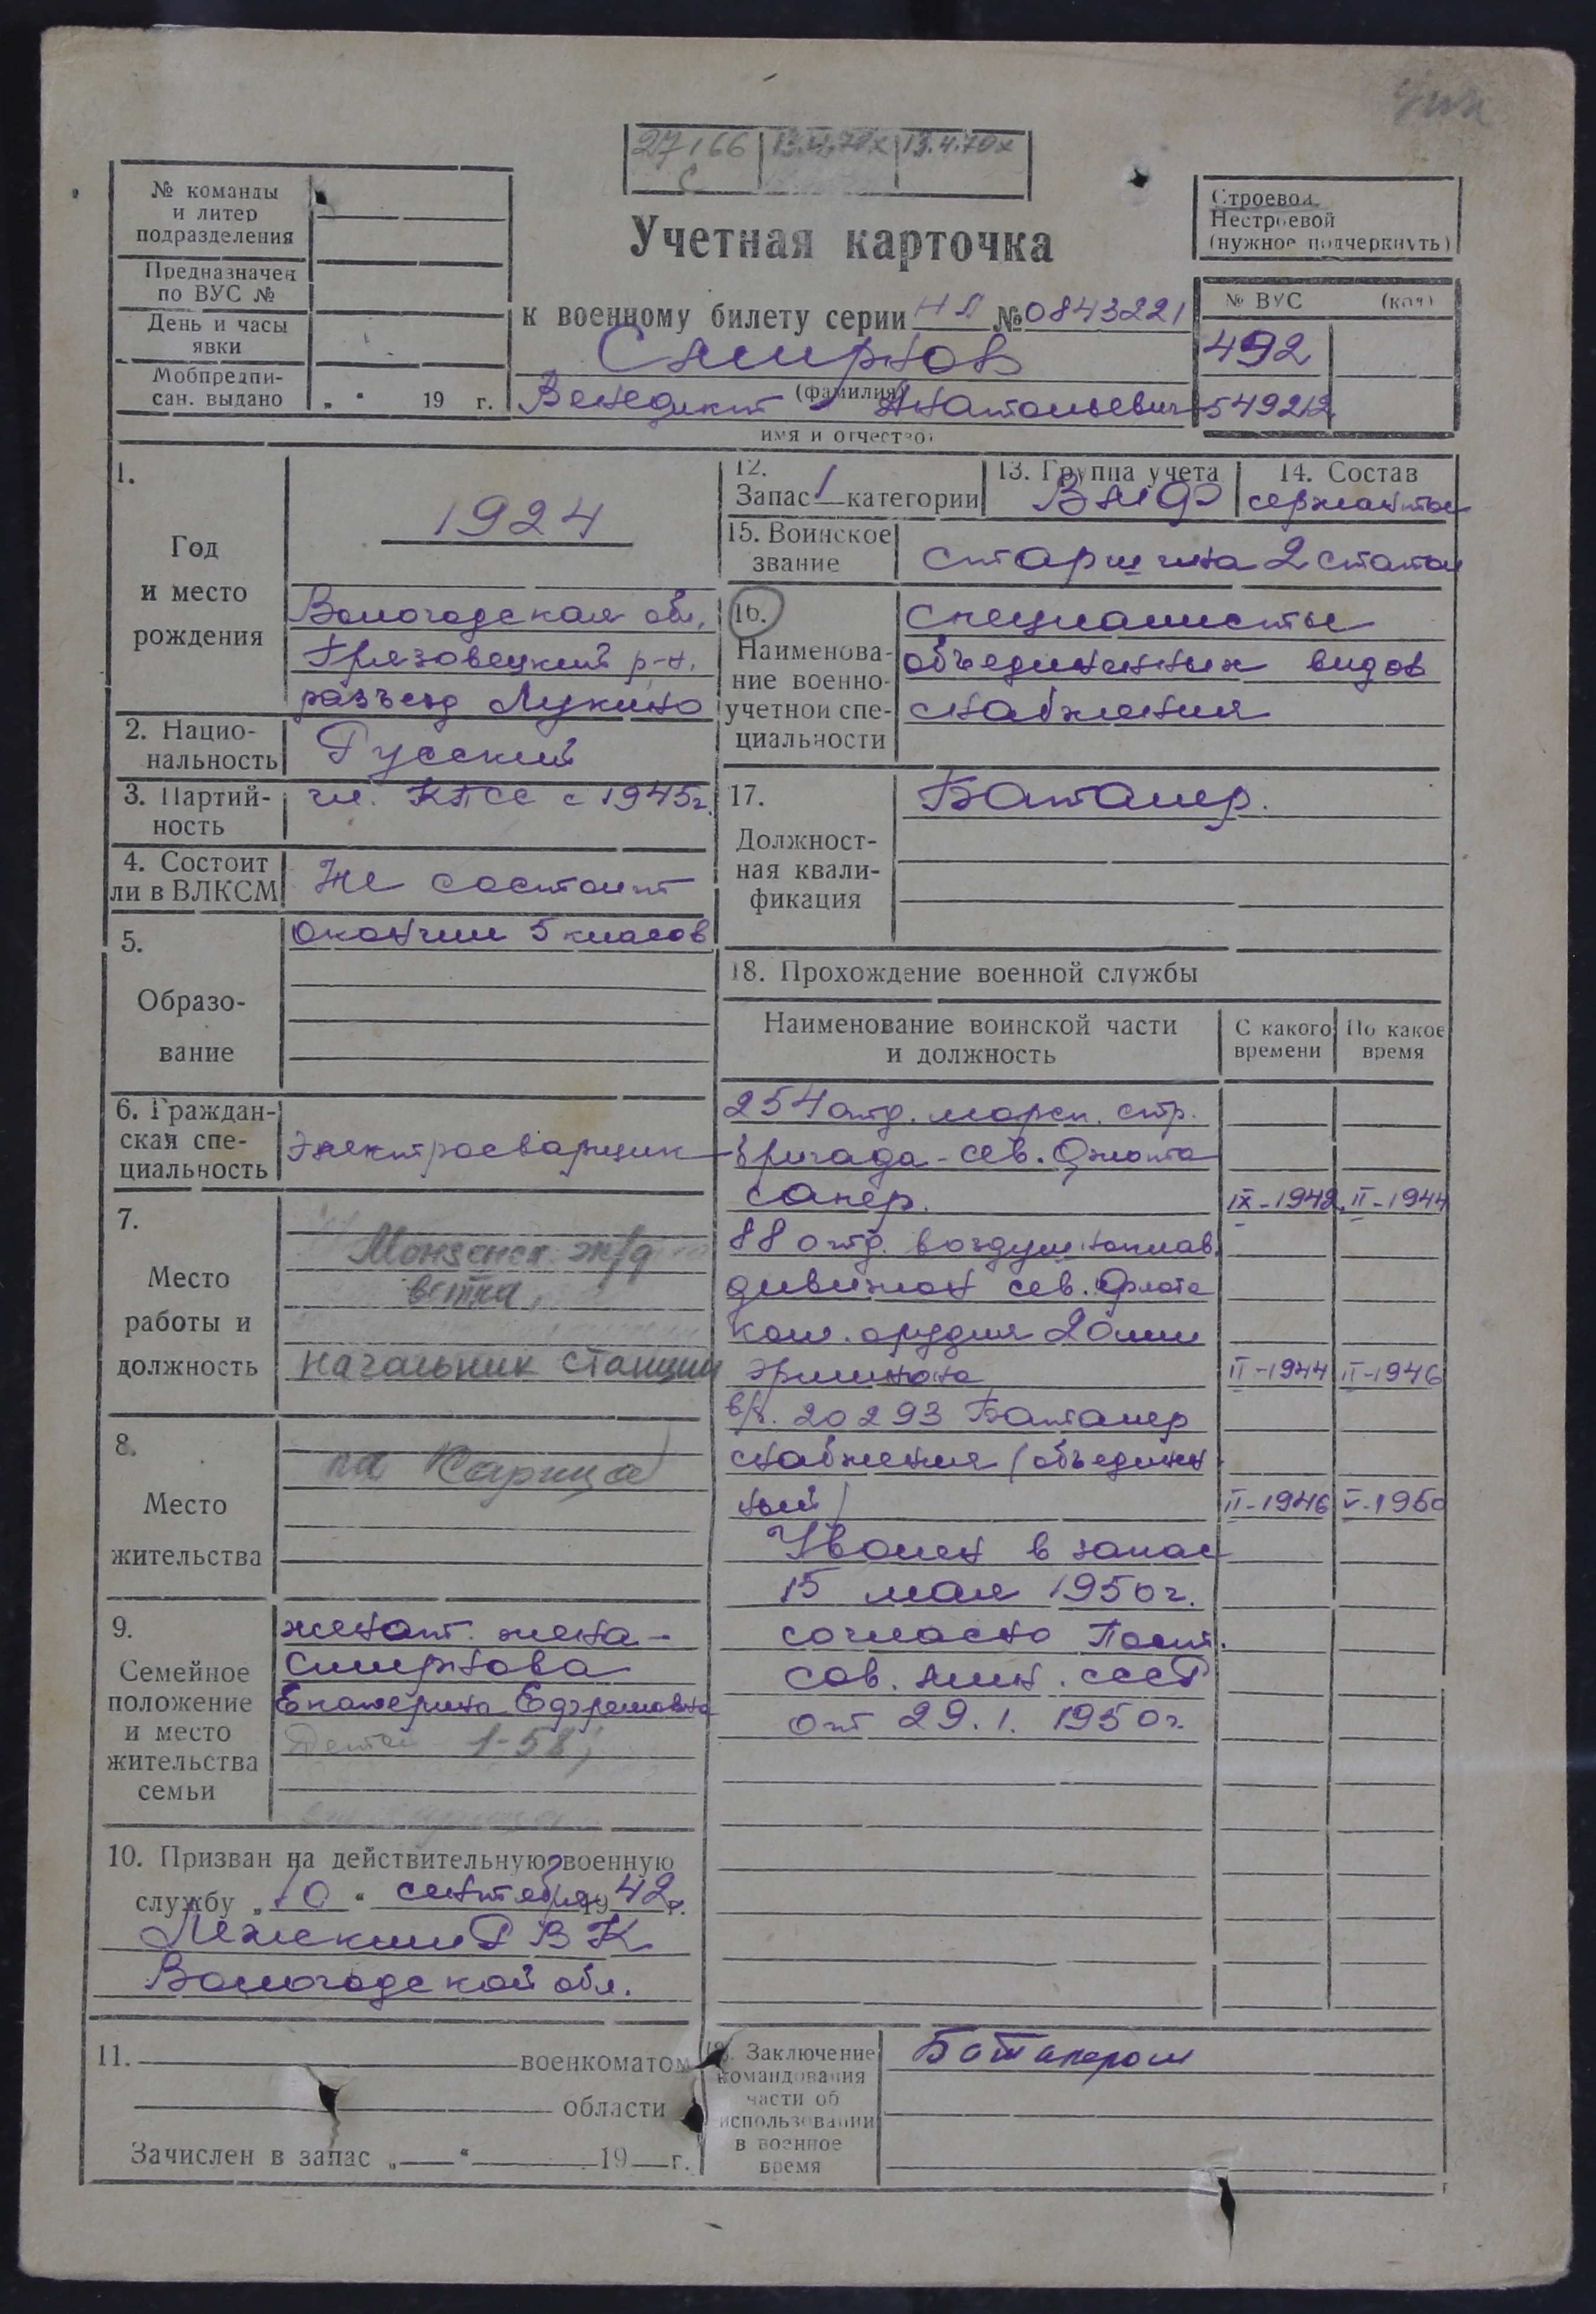 27/66 13.4.70х 13.4.70х
с
№ команды
и литер
подразделения
Предназначен
по ВУС №
День и часы
явки
Мобпредпи-
сан. выдано „ “ 19 г.
Учетная карточка
к военному билету серии НП № 0843221
Смирнов
(фамилия)
Венедикт Анатольевич
имя и отчество
Строевой,
Нестроевой
(нужное подчеркнуть)
№ ВУС (код)
492
549212
1.
Год
и место
рождения
1924
Вологодская обл,
Грязовецкий р-н,
разъезд Лукино
2. Нацио-
нальность
Русский
3. Партий-
ность
чл. КПСС с 1945г.
4. Состоит
ли в ВЛКСМ
Не состоит
5.
Образо-
вание
Окончил 5 класов
6. Граждан-
ская спе-
циальность
Электросварщик
7.
Место
работы и
должность
Монзенск. ж/д
ветка,
Начальник станции
8.
Место
жительства
9.
Семейное
положение
и место
жительства
семьи
женат. жена-
Смирнова
Екатерина Ефремовна
Дети 1-58,
10. Призван на действительную военную
службу „10“ сентября 1942г.
Лежский РВК
Вологодской обл.
11. военкоматом
области
Зачислен в запас „ “ 19 г.
12.
Запас 1 категории
13. Группа учета
ВМФ
14. Состав
сержанты
15. Воинское
звание
старшина 2 статьи
16.
Наименова-
ние военно-
учетной спе-
циальности
Специалисты
объединенных видов
снабжения
17.
Должност-
ная квали-
фикация
Баталер.
18. Прохождение военной службы
Наименование воинской части
и должность
С какого
времени
По какое
время
254 отд. морск. стр.
бригада-сев. Флота
сапер. IX-1942. II-1944
88 отд. воздушноплав.
дивизион сев. флота
ком. орудия 20мм
эрликона II-1944 II-1946
в/ч. 20293 Баталер
снабжения (объединен
ный) II-1946 V-1950
Уволен в запас
15 мая 1950г.
согласно Пост.
Сов. мин. СССР
от 29.1.1950г.
19. Заключение
командования
части об
использовании
в военное
время
Баталером